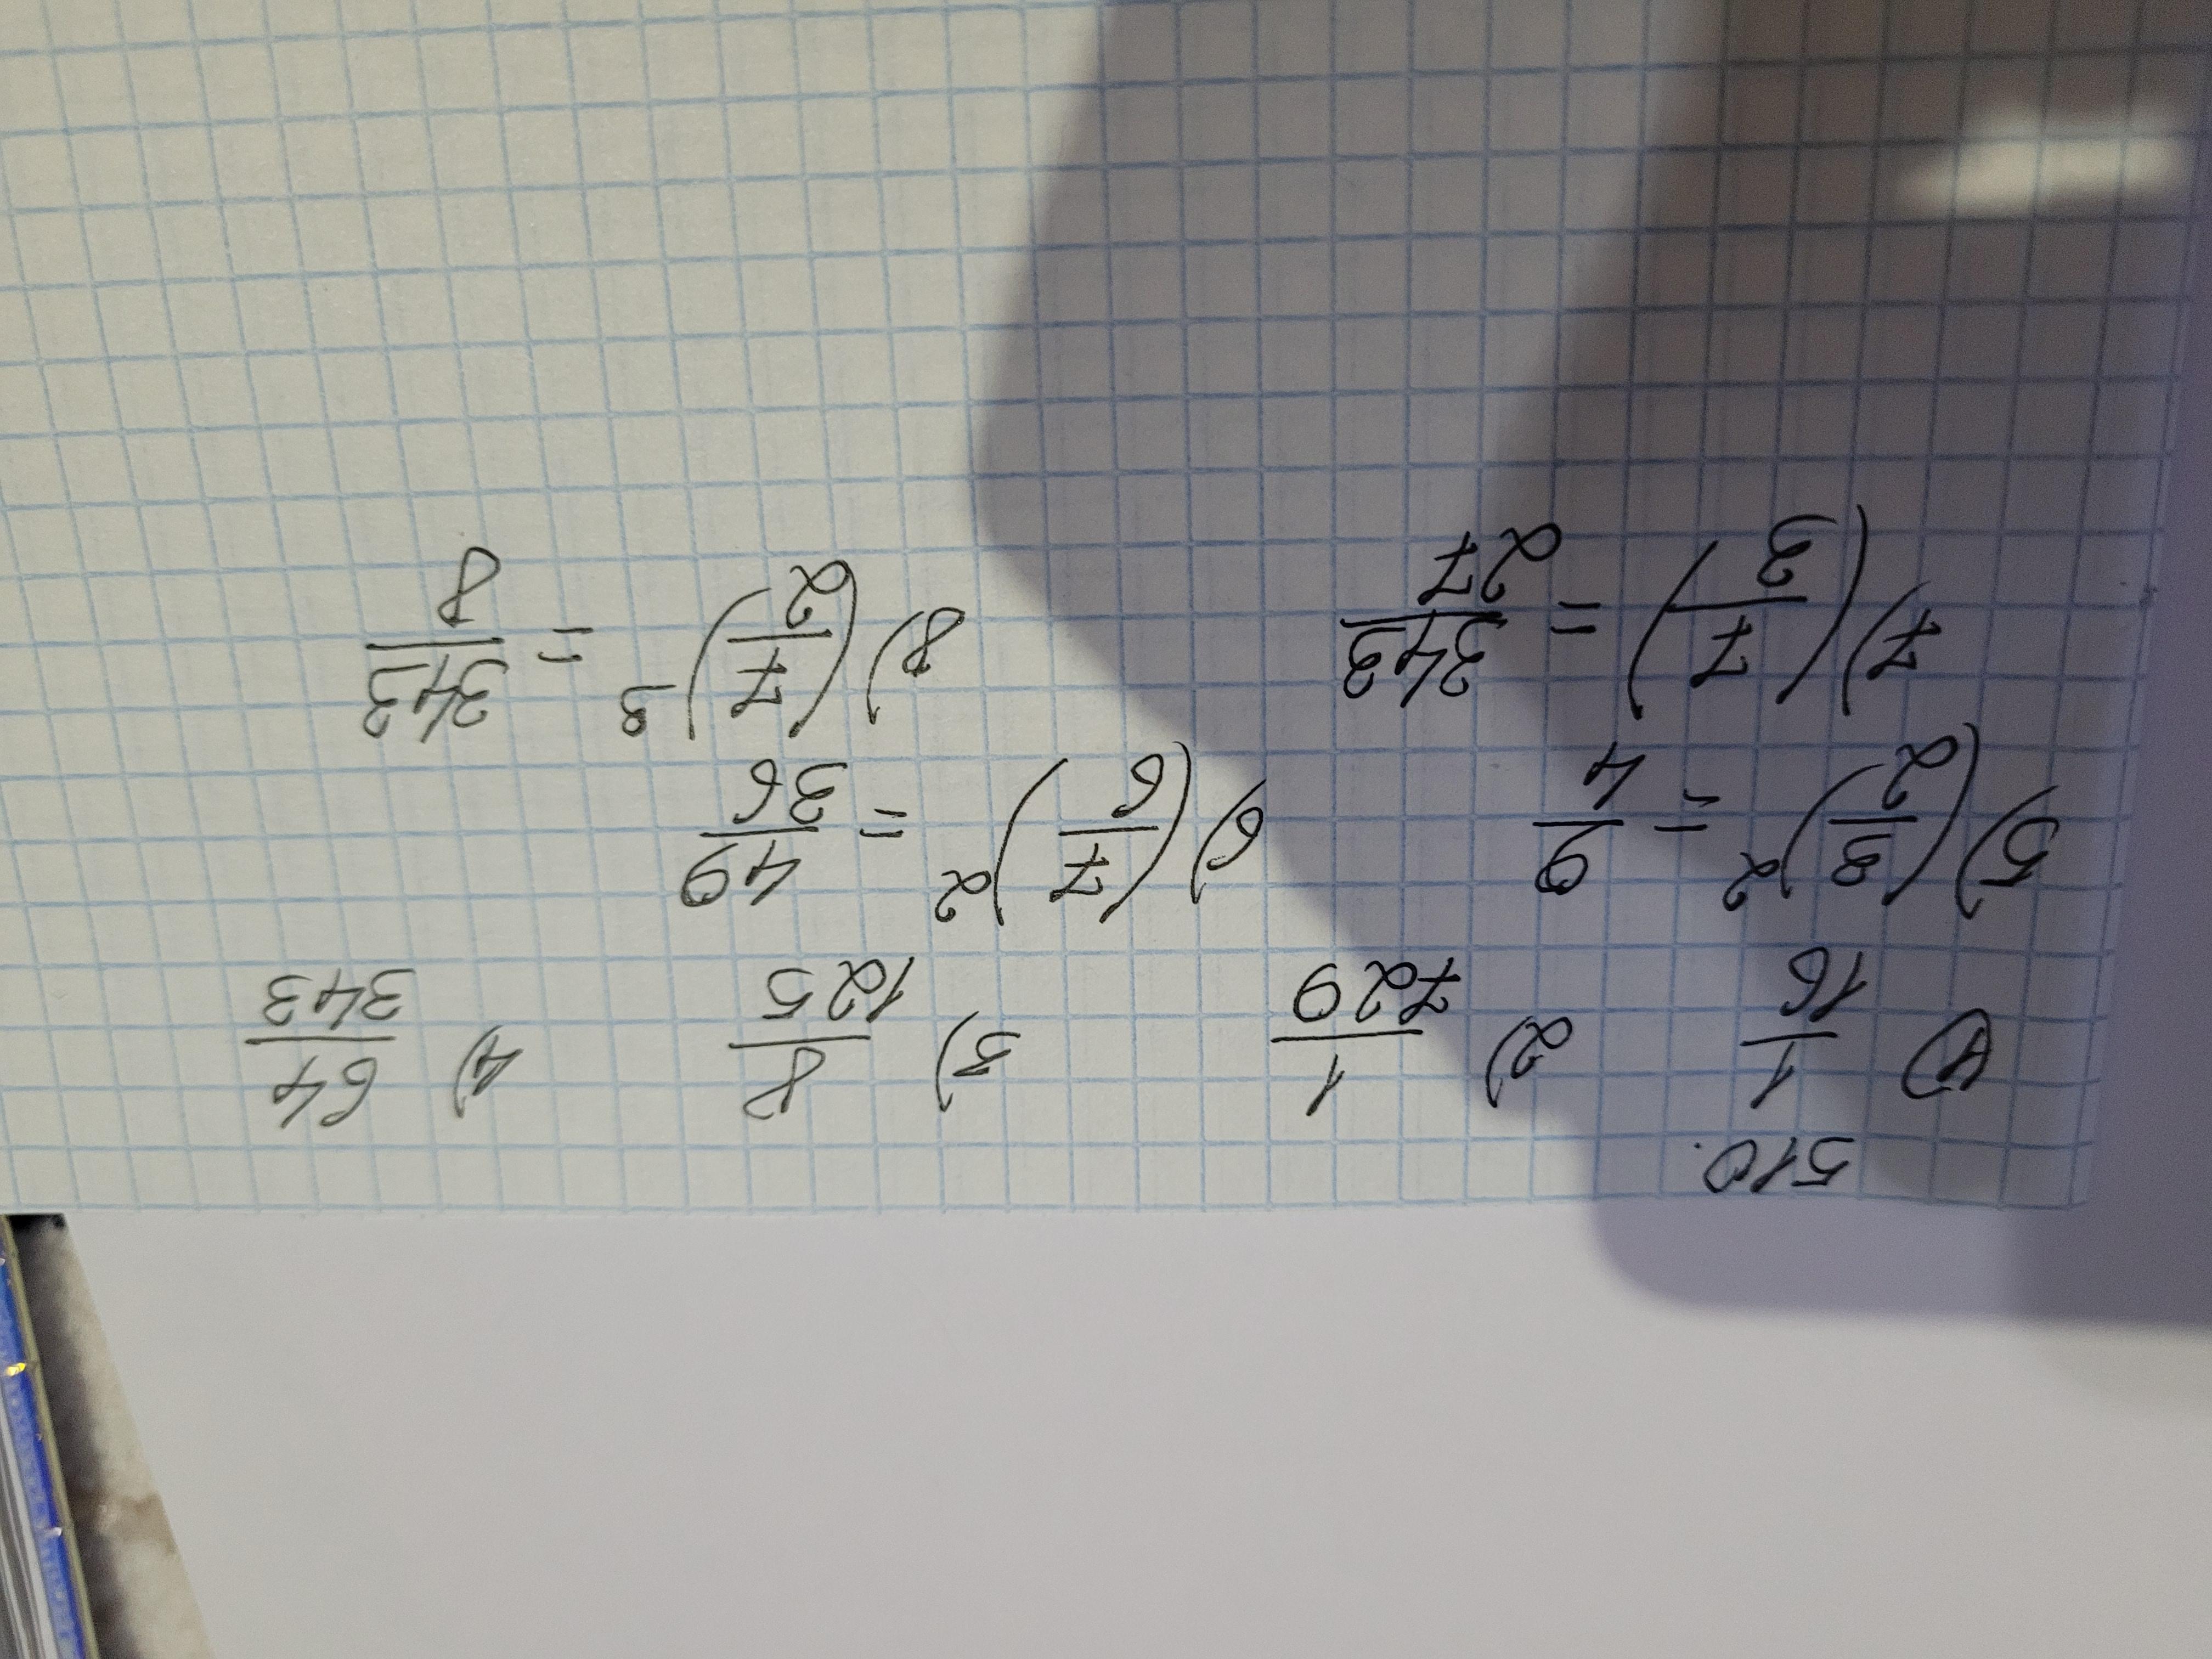 510.
1) 1/16 2) 1/729 3) 8/125 4) 64/343
5) (3/2)² = 9/4 6) (7/6)² = 49/36
7) (7/3) = 343/27 8) (7/2)³ = 343/8